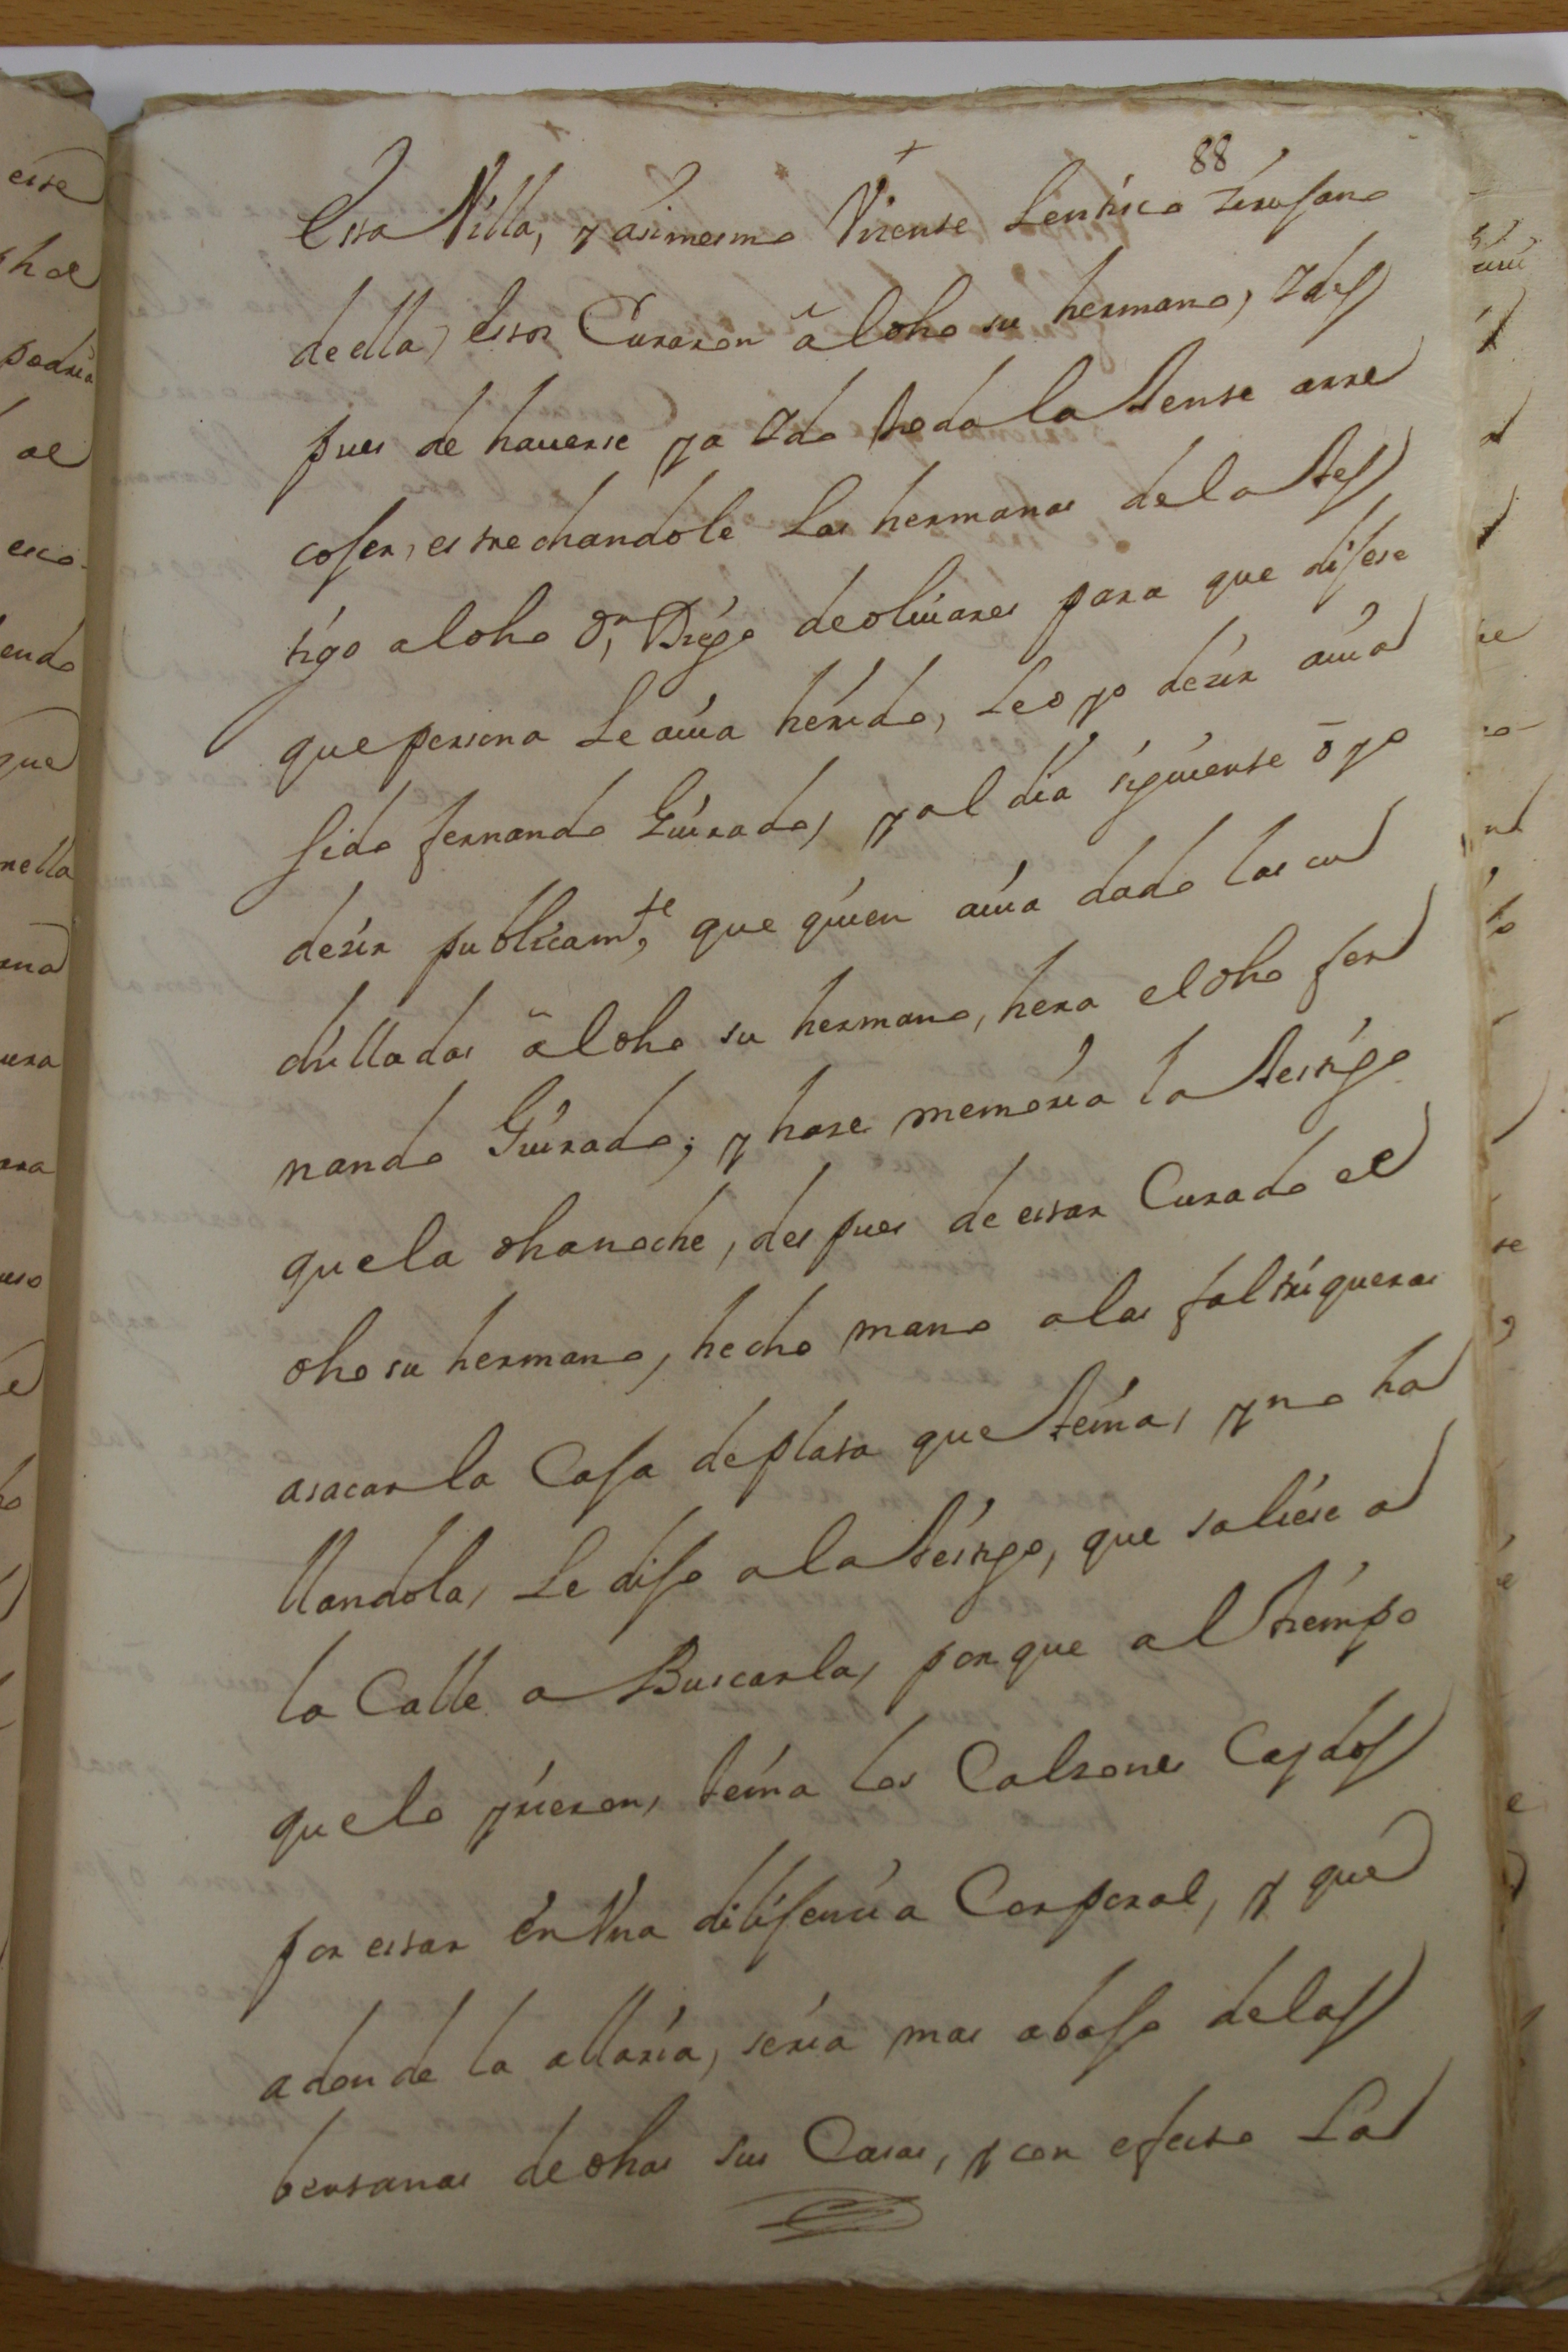 88
Esta Villa, y asimesmo Vizente Lentisco Zirujano
de ella, estos Curaron â l dho su hermano, y des
pues de hauerse ya ydo toda la Jente a rre
cojer, estrechandole Las hermanas de la tes
tigo al dho Dn, Diego de oliuares para que dijese
que persona Le auia herido, Le oyo dezir auia
sido fernando Guirado, y al dia siguiente ōyo
dezir publicamte, que quien auia dado las cu
chilladas â l dho su hermano, hera el dho fer
nando Guirado; y haze memoria la testigo
que la dha noche, despues de estar Curado el
dho su hermano, hecho mano a las faltriqueras
a sacar la Caja de plata que tenia, y no ha
llandola, Le dijo a la testigo, que saliese a
la Calle a Buscarla, porque al tiempo
que lo yrieron, tenia los Calzones Caydos
por estar en Vna dilijencia Corporal, y que
a donde la allaria, seria mas abajo de las
bentanas de dhas sus Casas, y con efecto La
esse
podria
al
endo
que
nella